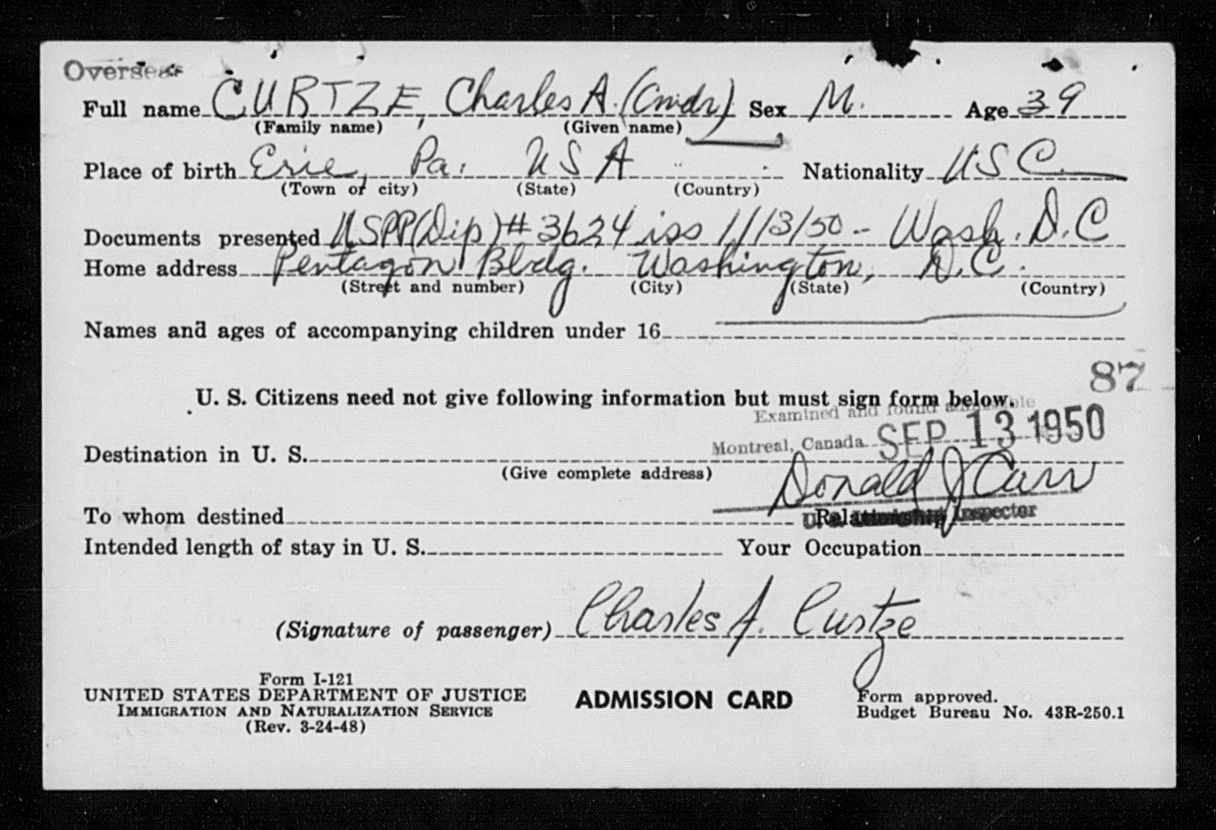 Overseas
Full name CURTZE, Charles A. (Cmdr) Sex M. Age 39
(Family name) (Given name)
Place of birth Erie, Pa. USA Nationality USC
(Town or city) (State) (Country)
Documents presented USPP(Dip)# 3624 iss 1/13/50 - Wash. D.C
Home address Pentagon Bldg. Washington, D.C.
(Street and number) (City) (State) (Country)
Names and ages of accompanying children under 16
87
U. S. Citizens need not give following information but must sign form below.
Examined and found admissible
Montreal, Canada SEP 13 1950
Destination in U. S.
(Give complete address)
Donald J Carr
To whom destined Relationship
Inspector
Intended length of stay in U. S. Your Occupation
(Signature of passenger) Charles A. Curtze
Form I-121
UNITED STATES DEPARTMENT OF JUSTICE
IMMIGRATION AND NATURALIZATION SERVICE
(Rev. 3-24-48)
ADMISSION CARD
Form approved.
Budget Bureau No. 43R-250.1